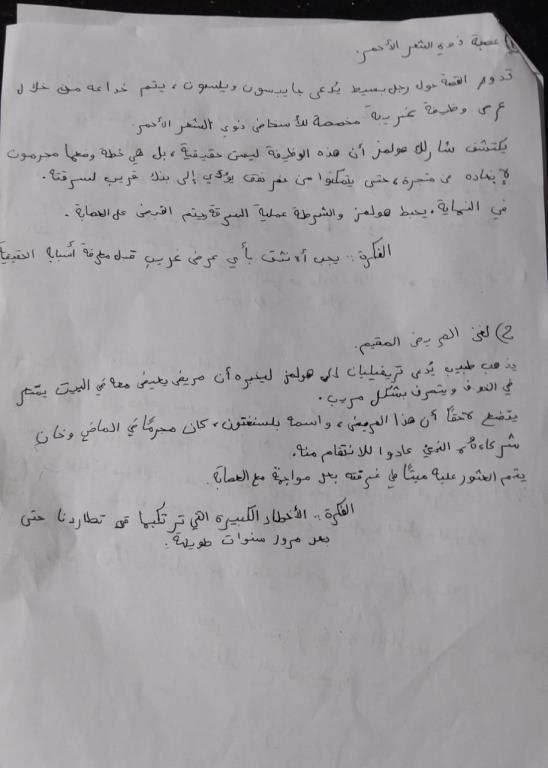 1) عصبة ذوي الشعر الأحمر.
تدور القصة حول رجل بسيط يُدعى جايبسون ويلسون، يتم خداعه من خلال
عرض وظيفة غريبة مخصصة للأشخاص ذوي الشعر الأحمر.
يكتشف شارلك هولمز أن هذه الوظيفة ليست حقيقية، بل هي خطة وضعها مجرمون
لإبعاده عن متجره، حتى يتمكنوا من حفر نفق يؤدي إلى بنك قريب لسرقته.
في النهاية. يحبط هولمز والشرطة عملية السرقة ويتم القبض على العصابة.
الفكرة:. يجب ألا نثق بأي عرض غريب قبل معرفة أسبابه الحقيقية
2) لغز المريض المقيم.
يذهب طبيب يُدعى تريفيليان إلى هولمز ليخبره أن مريض يعيش معه في البيت يشعر
في الخوف ويتصرف بشكل مريب.
يتضح لاحقًا أن هذا المريض، واسمه بلسنغتون، كان مجرمًا في الماضي وخان
شركاءه الذين عادوا للانتقام منه.
يتم العثور عليه ميتًا في غرفته بعد مواجهة مع العصابة.
الفكرة:. الأخطاء الكبيرة التي ترتكبها قد تطاردنا حتى
بعد مرور سنوات طويلة.